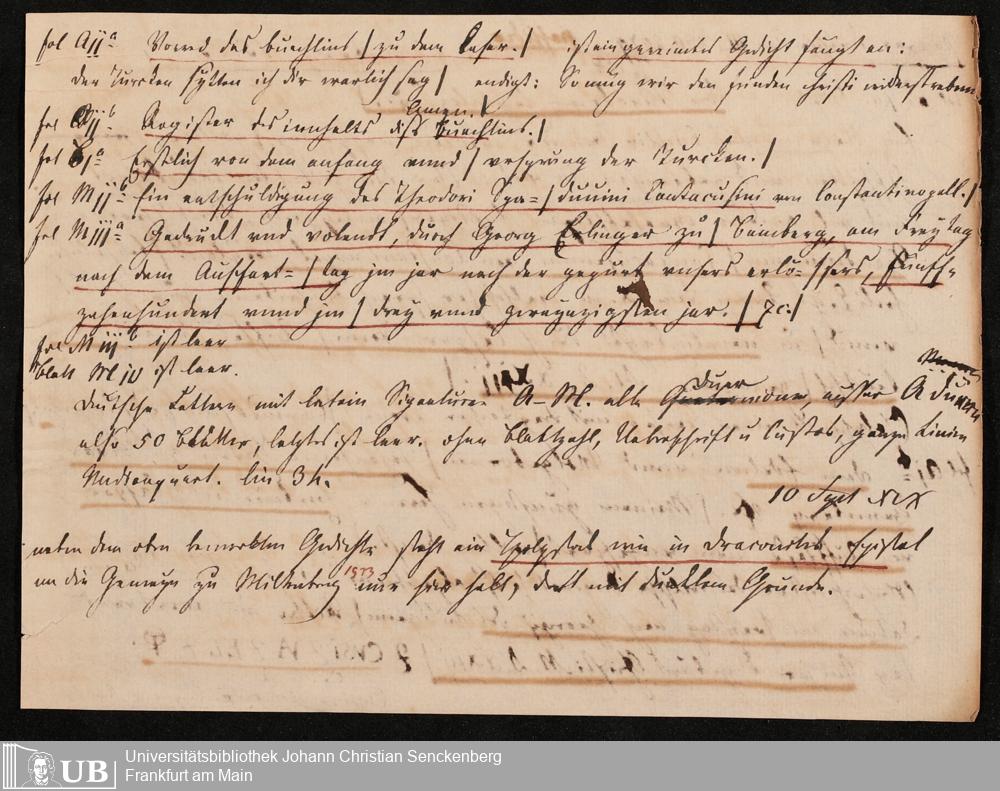 fol Aij a. Vorred des buechlins / zu dem Leser. / ist ein gereimtes Gedicht fängt an:
Der Turcken sytten ich dir warlich sag / endigt: So mug wir den feinden christi widerstreben
Amen. /
fol Aij b. Register des innhalts diss buechlins. /
fol Bj a Erstlich von dem anfang vnnd / vrsprung der Turcken. /
fol Mij b Ein entschuldigung des Theodori Spa= / duuini Cantacusini von Constantinopell. /
fol Miij a Gedruckt vnd volendt, durch Georg Erlinger zu / Bamberg, am Freytag
nach dem Auffart= / tag jm jar nach der gepurt vnsers erlö= / sers, Funff=
zehenhundert vnnd jm / drey vnnd zweyuzigsten jar. / ꝛc. /
fol Miij b ist leer
Blatt M iv ist leer.
Deutsche Lettern mit latein Signaturen A–M. alle Duernionen, ausser A
also 50 Blätter, letztes ist leer. ohne Blattzahl, Ueberschrift u Custos, ganze Linien
Medianquart. Lin 34.
10 Sept XIX
neben dem oben bemerkten Gedichte steht ein Holzstock wie in Draconites Epistel
an die Gemeyn zu Miltenberg 1523 nur hier halb, dort mit dunklem Grunde.
UB
Universitätsbibliothek Johann Christian Senckenberg
Frankfurt am Main